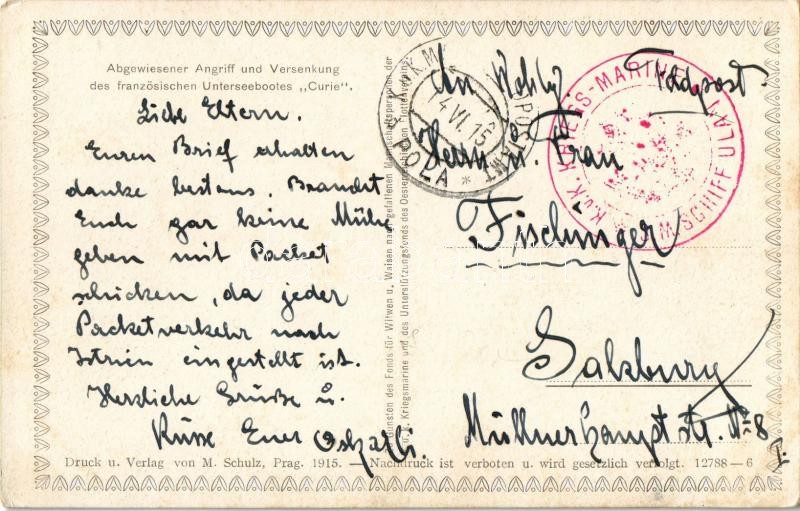 Abgewiesener Angriff und Versenkung
des französischen Unterseebootes „Curie".
Liebe Eltern.
Euren Brief erhalten
danke bestens. Braucht
Euch gar keine Mühe
geben mit Packet
schicken, da jeder
Packetverkehr nach
Istrien eingestellt ist.
Herzliche Grüße u.
Küsse Euer
Druck u. Verlag von M. Schulz, Prag. 1915. — Nachdruck ist verboten u. wird gesetzlich verfolgt. 12788—6
des Fonds für Witwen u. Waisen nach gefallenen Mannschaftspersonen der
Kriegsmarine und des Unterstützungsfonds des Oesterreichischen Flottenvereins
14 VI. 15
POLA
K.u.K. KRIEGS-MARINE
S.M. SCHIFF
Feldpost.
An
Herrn u. Frau
Fischinger
Salzburg
Müllner hauptstr. № 8
I.